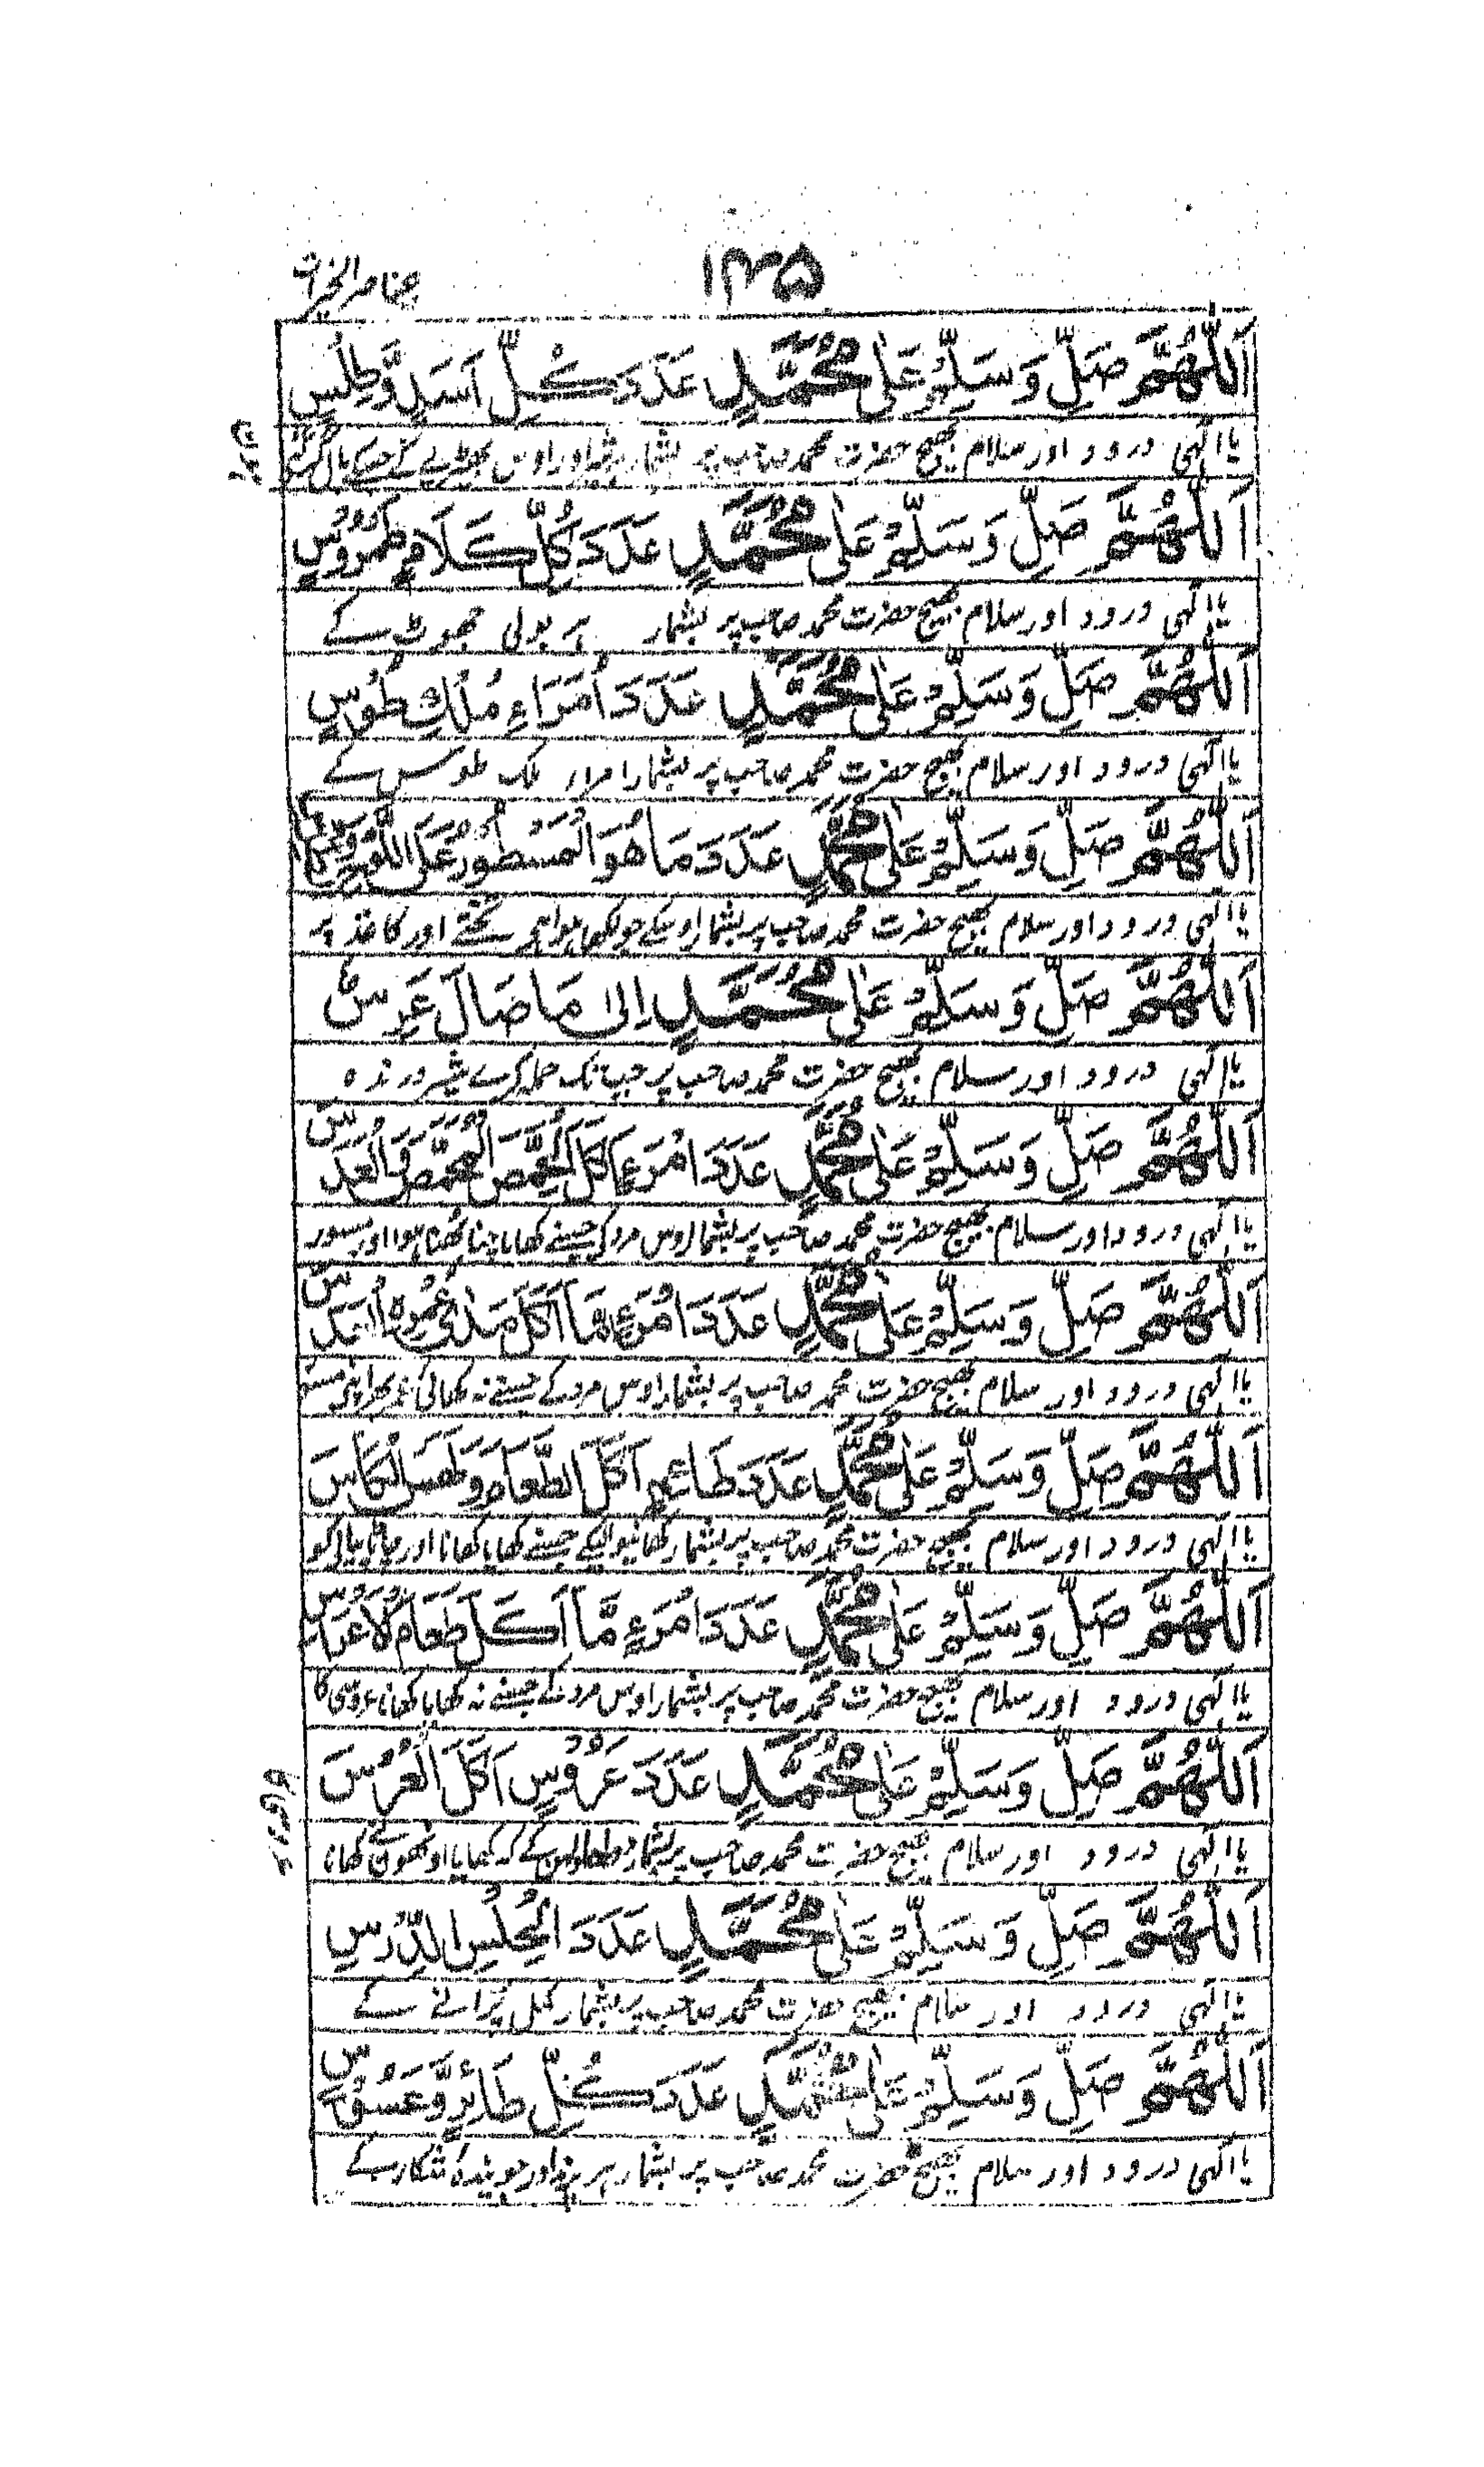 ۱۳۵
اَللّٰهُمَّ صَلِّ وَسَلِّمْ عَلٰى مُحَمَّدٍ عَدَدَ كُلِّ اَسَدٍ وَّطِلْسٍ
یا الٰہی درود اور سلام بھیج حضرت محمد صاحب پر بشمار
اَللّٰهُمَّ صَلِّ وَسَلِّمْ عَلٰى مُحَمَّدٍ عَدَدَ كُلِّ كَلَامٍ طَمْرُوْسٍ
یا الٰہی درود اور سلام بھیج حضرت محمد صاحب پر بشمار ہر بولی جھوٹ کے
اَللّٰهُمَّ صَلِّ وَسَلِّمْ عَلٰى مُحَمَّدٍ عَدَدَ اُمَرَاءِ مُلْكِ طُوْسٍ
یا الٰہی درود اور سلام بھیج حضرت محمد صاحب پر بشمار امراء ملک طوس کے
اَللّٰهُمَّ صَلِّ وَسَلِّمْ عَلٰى مُحَمَّدٍ عَدَدَ مَا هُوَ الْمَسْطُوْرُ عَلَى
یا الٰہی درود اور سلام بھیج حضرت محمد صاحب پر بشمار اوسکے جو لکھا ہوا ہے تختے اور کاغذ پر
اَللّٰهُمَّ صَلِّ وَسَلِّمْ عَلٰى مُحَمَّدٍ اِلٰى مَا صَالَ عَرِسٌ
یا الٰہی درود اور سلام بھیج حضرت محمد صاحب پر جب تک حملہ کرے شیر درندہ
اَللّٰهُمَّ صَلِّ وَسَلِّمْ عَلٰى مُحَمَّدٍ عَدَدَ امْرَءٍ اَكَلَ الْحِمَّصَ الْمُحَمَّصَ وَالْعَدَسَ
یا الٰہی درود اور سلام بھیج حضرت محمد صاحب پر بشمار اوس مرد کی جسنے کھایا چنا بھنا ہوا اور مسور
اَللّٰهُمَّ صَلِّ وَسَلِّمْ عَلٰى مُحَمَّدٍ عَدَدَ امْرَءٍ مَّا اَكَلَ مَدٰى عُمُرِهٖ
یا الٰہی درود اور سلام بھیج حضرت محمد صاحب پر بشمار اوس مرد کے جسنے نہ کھائی عمر بھر
اَللّٰهُمَّ صَلِّ وَسَلِّمْ عَلٰى مُحَمَّدٍ عَدَدَ طَاعِمٍ اَكَلَ الطَّعَامَ وَلَحِسَ الْكَاسَ
یا الٰہی درود اور سلام بھیج حضرت محمد صاحب پر بشمار کھانیوالیکے جسنے کھایا کھانا اور چاٹا پیالی کو
اَللّٰهُمَّ صَلِّ وَسَلِّمْ عَلٰى مُحَمَّدٍ عَدَدَ امْرَءٍ مَّا اَكَلَ طَعَامَ
یا الٰہی درود اور سلام بھیج حضرت محمد صاحب پر بشمار اوس مرد کے جسنے نہ کھایا کھانا عروسی کا
اَللّٰهُمَّ صَلِّ وَسَلِّمْ عَلٰى مُحَمَّدٍ عَدَدَ عَرُوْسٍ اَكَلَ الْعُرْسَ
یا الٰہی درود اور سلام بھیج حضرت محمد صاحب پر بشمار کے کہ کھایا اونھوں نے کھانا
اَللّٰهُمَّ صَلِّ وَسَلِّمْ عَلٰى مُحَمَّدٍ عَدَدَ الْحِلْسِ الدِّرْسِ
یا الٰہی درود اور سلام بھیج حضرت محمد صاحب پر بشمار کمل پرانے کے
اَللّٰهُمَّ صَلِّ وَسَلِّمْ عَلٰى مُحَمَّدٍ عَدَدَ كُلِّ طَائِرٍ وَّعَسُوْسٍ
یا الٰہی درود اور سلام بھیج حضرت محمد صاحب پر بشمار ہر پرند اور جویندۂ شکار کے